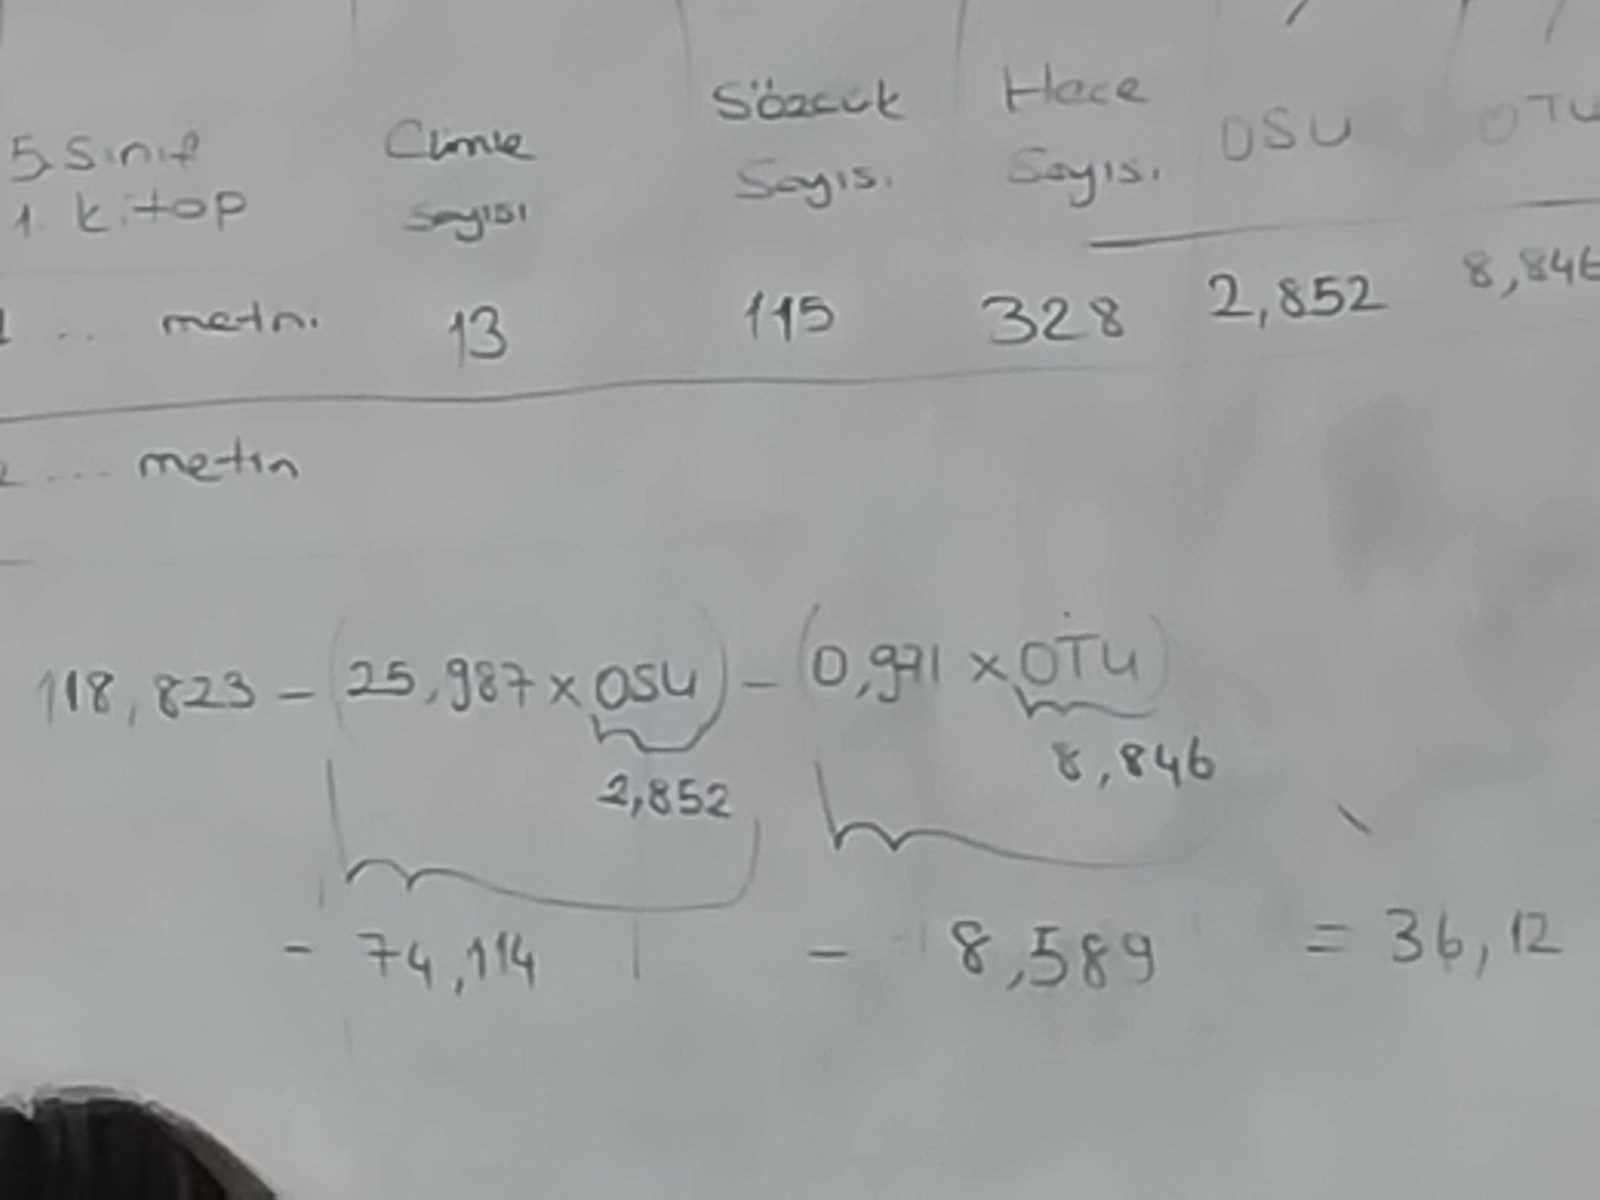 5. Sınıf Cümle Sözcük Hece OSU OTU
1. kitap sayısı Sayısı Sayısı
1 .. metni 13 115 328 2,852 8,846
2 ... metin
118,823 - (25,987 x OSU) - (0,971 x OTU)
2,852 8,846
- 74,114 - 8,589 = 36,12